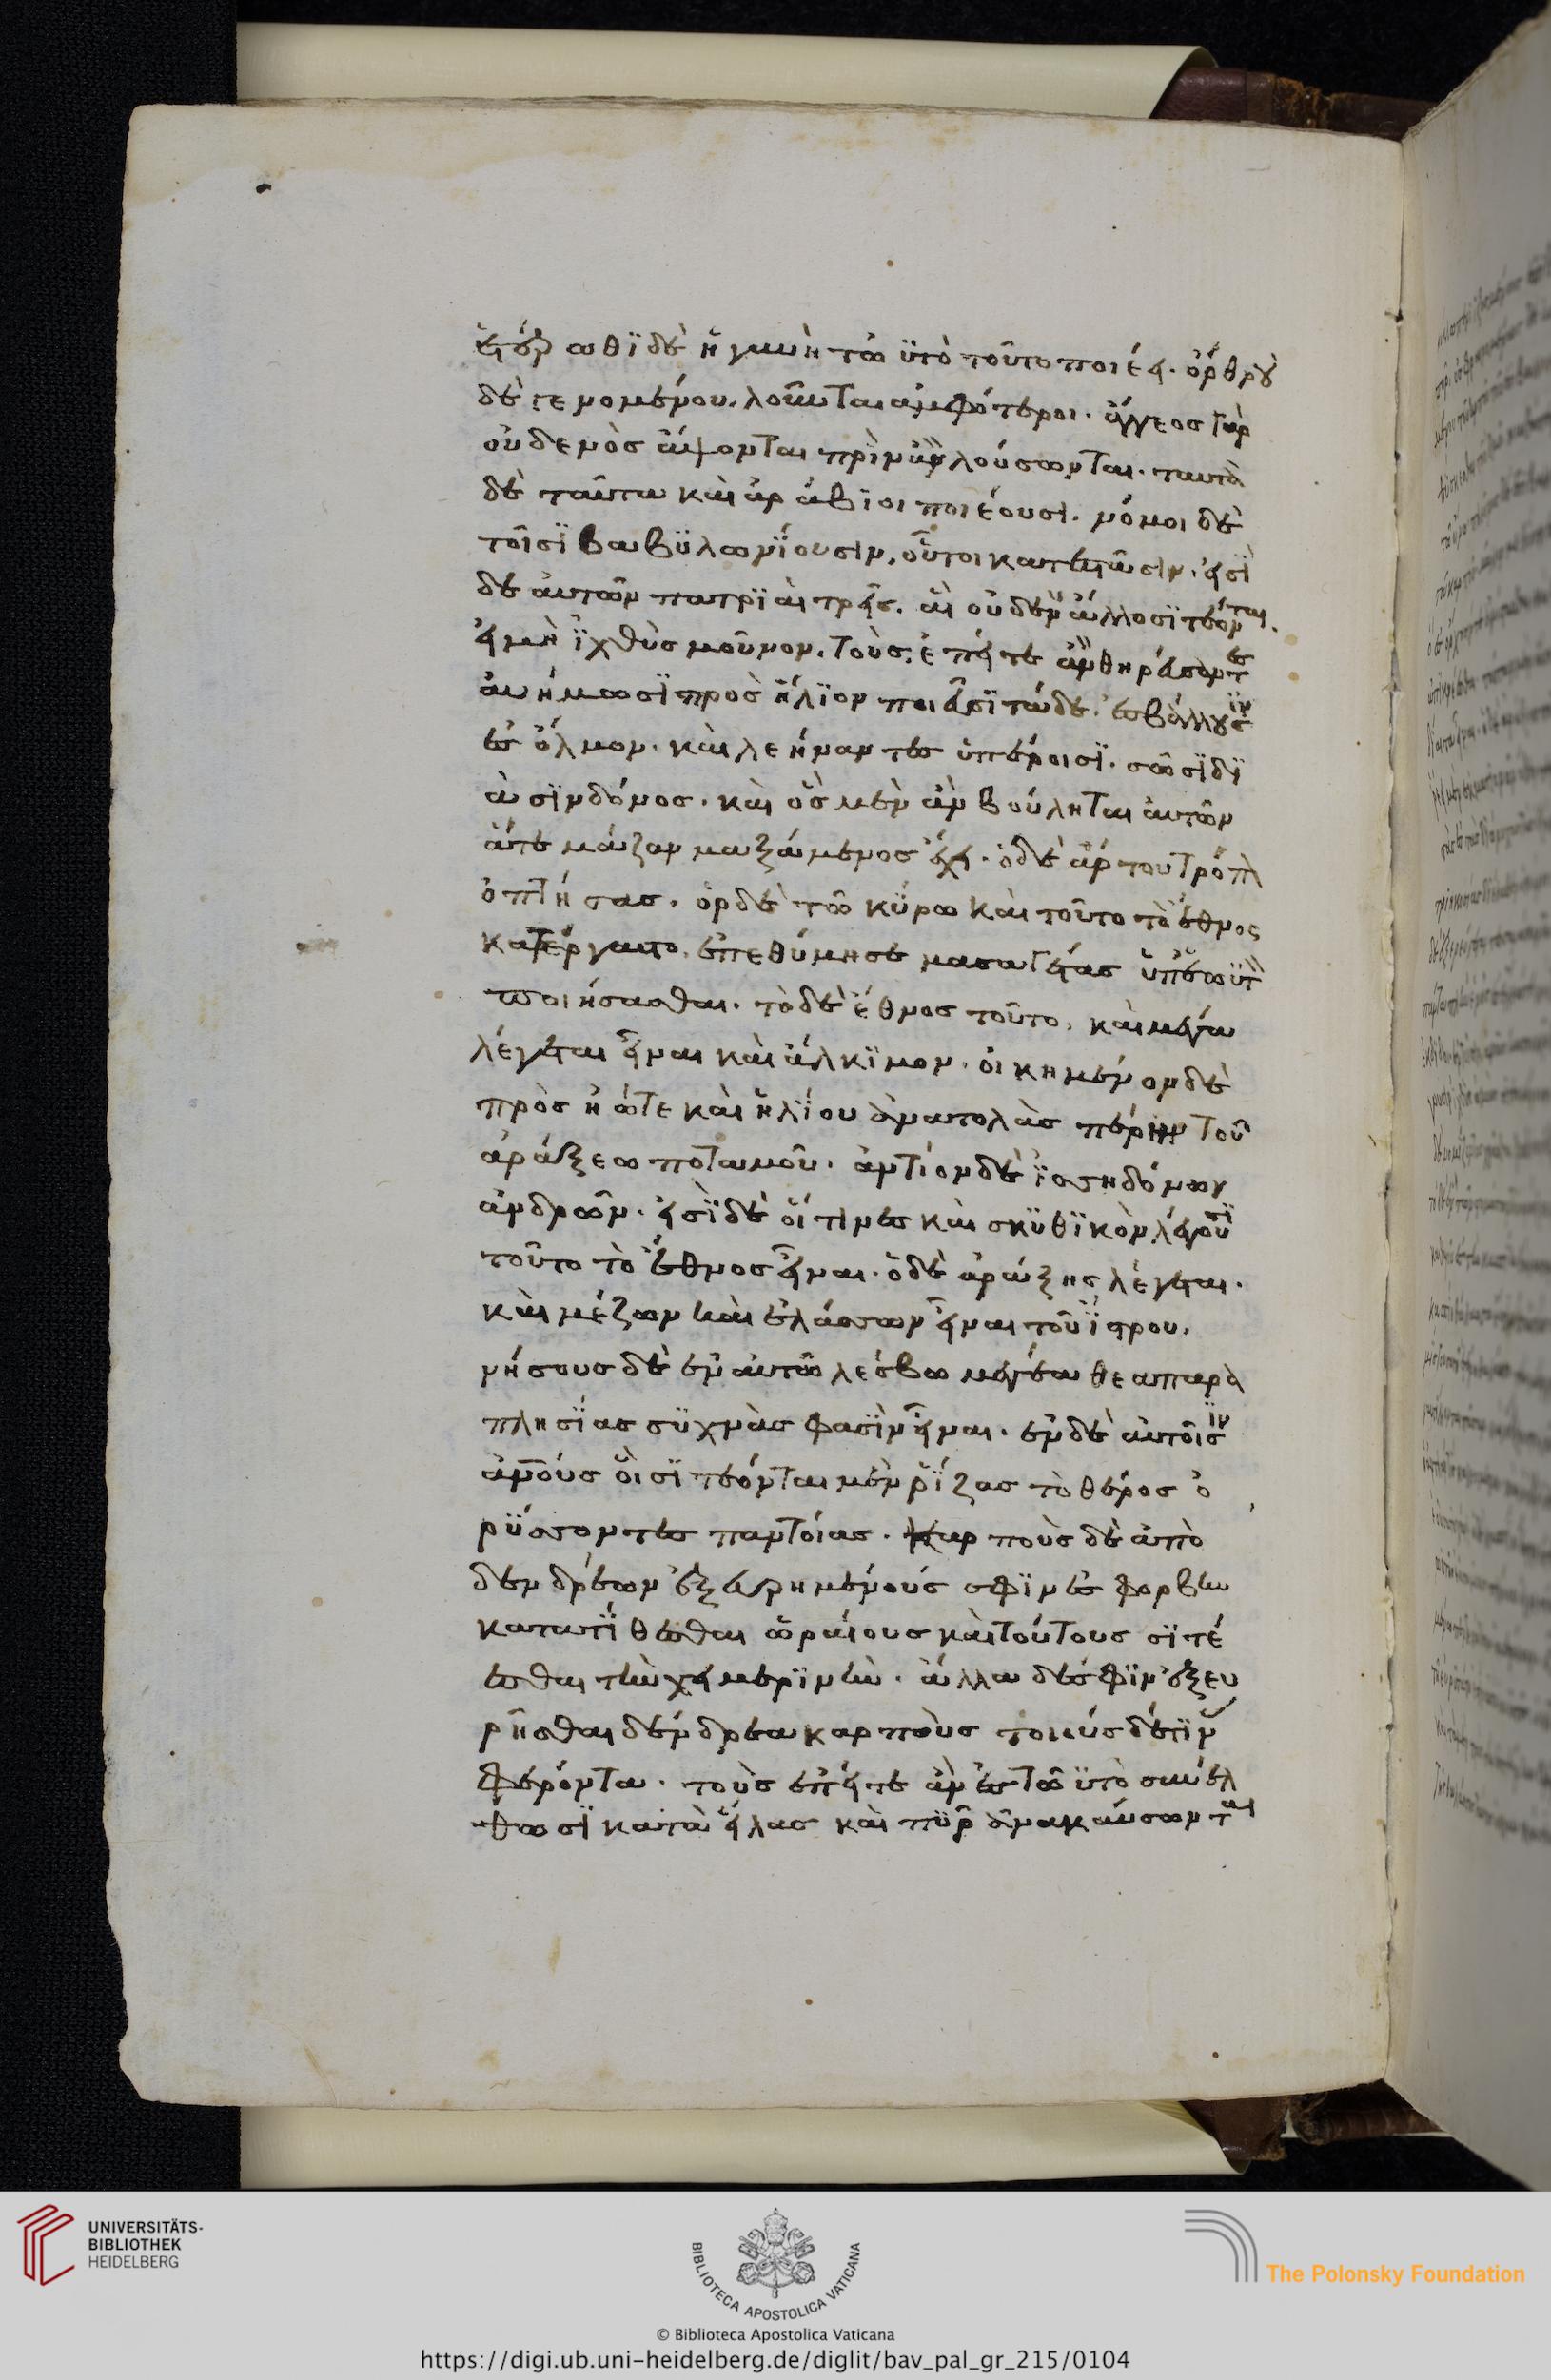 ἑτέρωθι δὲ ἡ γυνὴ τὠυτὸ τοῦτο ποιέει. ὄρθρου
δὲ γενομένου, λοῦνται ἀμφότεροι. ἄγγεος γὰρ
οὐδενὸς ἅψονται πρὶν ἂν λούσωνται. ταυτὰ
δὲ ταῦτα καὶ ἀράβιοι ποιέουσι. νόμοι δὲ
τοῖσι βαβυλωνίουσιν, οὗτοι κατεστᾶσιν. εἰσὶ
δὲ αὐτῶν πατριαὶ τρεῖς. αἳ οὐδὲν ἄλλο σιτέονται.
εἰ μὴ ἰχθῦς μοῦνον, τοὺς ἐπείτε ἂν θηρεύσαντες
αὐήνωσι πρὸς ἥλιον ποιεῦσι τάδε. ἐσβάλλουσιν
ἐς ὅλμον. καὶ λεήναντες ὑπέροισι. σῶσι δι
ὰ σινδόνος. καὶ ὃς μὲν ἂν βούληται αὐτῶν
ἅτε μάζαν μαξάμενος ἔχει. ὁ δὲ ἄρτου τρόπον
ὀπτήσας. ὡς δὲ τῶ κύρω καὶ τοῦτο τὸ ἔθνος
κατέργαστο, ἐπεθύμησε μασαγέτας ὑπ' ἑωυτῷ
ποιήσασθαι. τὸ δὲ ἔθνος τοῦτο, καὶ μέγα
λέγεται εἶναι καὶ ἄλκιμον. οἰκημένον δὲ
πρὸς ἠῶ τε καὶ ἡλίου ἀνατολὰς πέρην τοῦ
ἀράξεω ποταμοῦ. ἀντίον δὲ ἰσσηδόνων
ἀνδρῶν. εἰσὶ δὲ οἵτινες καὶ σκυθικὸν λέγουσι
τοῦτο τὸ ἔθνος εἶναι. ὁ δὲ ἀράξης λέγεται.
καὶ μέζων καὶ ἐλάσσων εἶναι τοῦ ἴστρου.
νήσους δὲ ἐν αὐτῶ λέσβω μεγάθεα παρα
πλησίας συχνὰς φασὶν εἶναι. ἐν δὲ αὐτοῖσιν
ἀνθρώπους οἳ σιτέονται μὲν ῥίζας τὸ θέρος ὀ
ρύσσοντες παντοίας. καρποὺς δὲ ἀπὸ
δενδρέων ἐξευρημένους σφιν ἐς φορβὴν
κατατίθεσθαι ὡραίους καὶ τούτους σιτέ
εσθαι τὴν χειμερινήν. ἄλλα δέ σφιν ἐξευ
ρῆσθαι δένδρεα καρποὺς τοιούσδέ τινας
φέροντα. τοὺς ἐπείτε ἂν ἐς τὠυτὸ συνέλ
θωσι κατὰ εἴλας καὶ πῦρ ἀνακαύσωνται
UNIVERSITÄTS-
BIBLIOTHEK
HEIDELBERG
BIBLIOTECA APOSTOLICA VATICANA
The Polonsky Foundation
© Biblioteca Apostolica Vaticana
https://digi.ub.uni-heidelberg.de/diglit/bav_pal_gr_215/0104